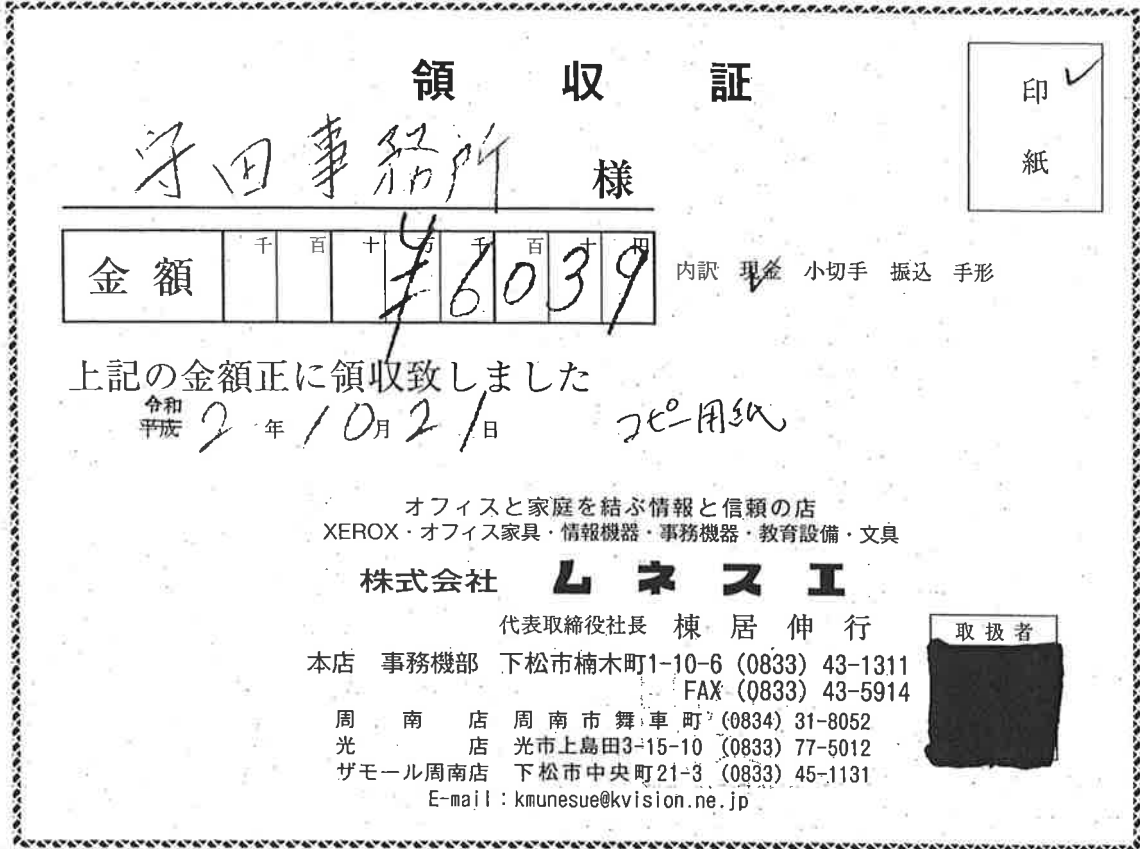 領収証
印紙
守田事務所 様
金額 千百十万千百十円 ¥6039
内訳 現金 小切手 振込 手形
上記の金額正に領収致しました
令和
平成 2年10月21日 コピー用紙
オフィスと家庭を結ぶ情報と信頼の店
XEROX・オフィス家具・情報機器・事務機器・教育設備・文具
株式会社 ムネスエ
代表取締役社長 棟居伸行
取扱者
本店 事務機部 下松市楠木町1-10-6 (0833) 43-1311
FAX (0833) 43-5914
周南店 周南市舞車町 (0834) 31-8052
光店 光市上島田3-15-10 (0833) 77-5012
ザモール周南店 下松市中央町21-3 (0833) 45-1131
E-mail:kmunesue@kvision.ne.jp